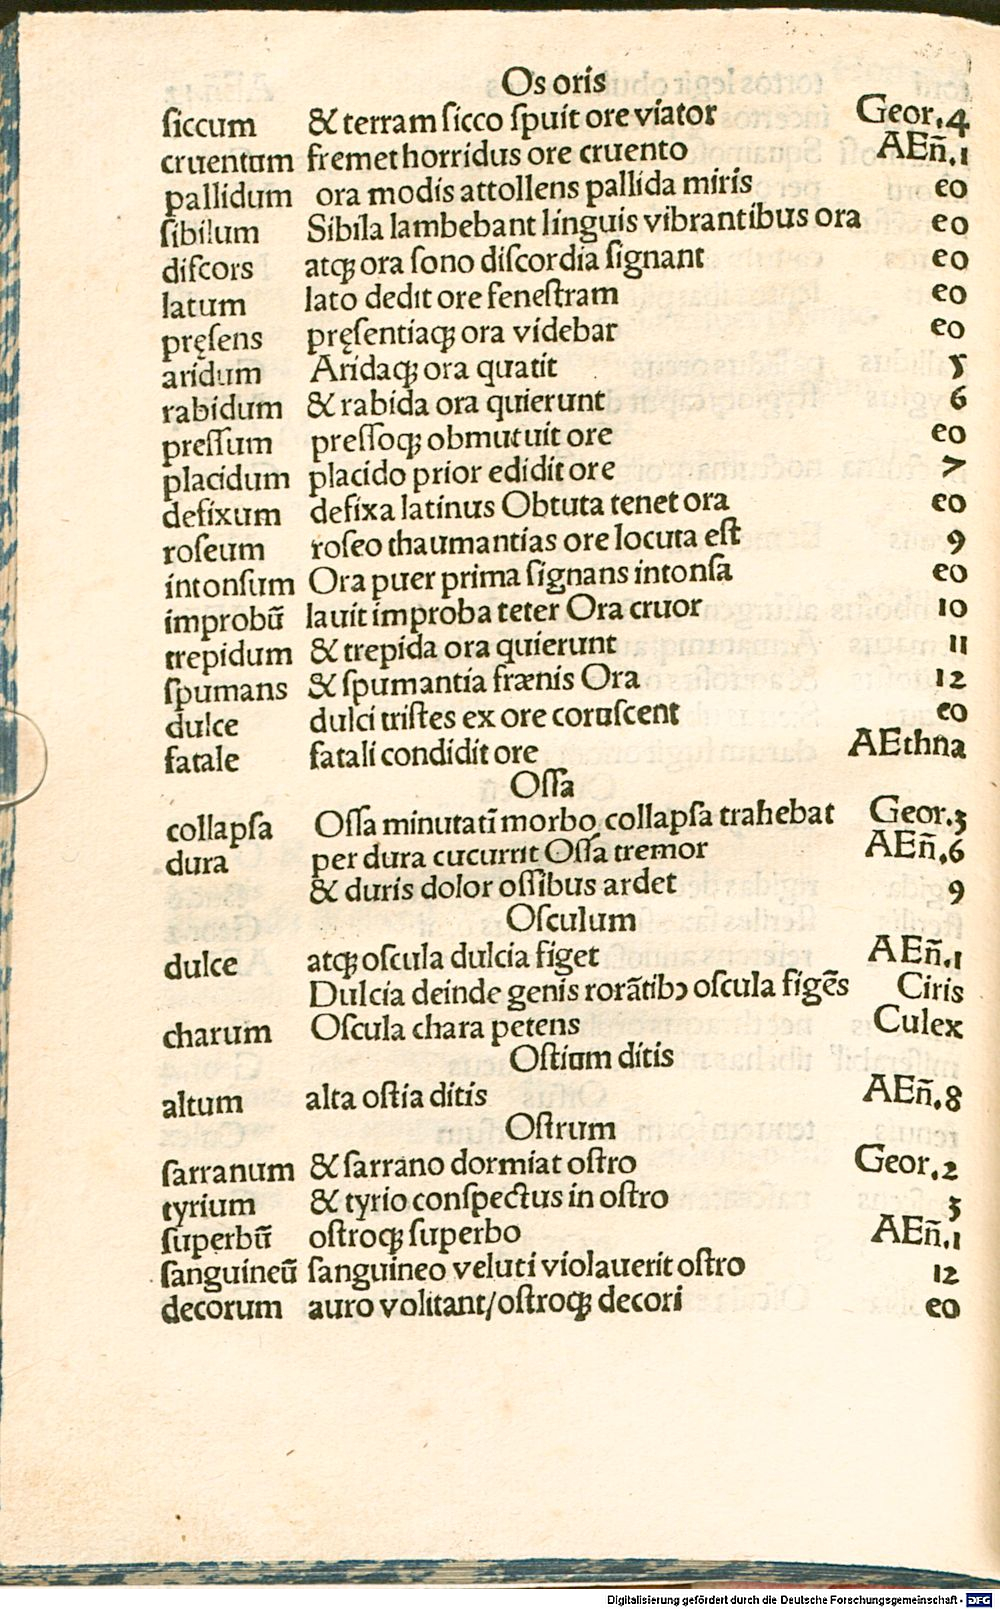 Os oris
ſiccum & terram ſicco ſpuit ore viator Geor.4
cruentum fremet horridus ore cruento AEn̄.1
pallidum ora modis attollens pallida miris eo
ſibilum Sibila lambebant linguis vibrantibus ora eo
diſcors atqꝫ ora ſono diſcordia ſignant eo
latum lato dedit ore feneſtram eo
pręſens pręſentiaqꝫ ora videbar eo
aridum Aridaqꝫ ora quatit 5
rabidum & rabida ora quierunt 6
preſſum preſſoqꝫ obmutuit ore eo
placidum placido prior edidit ore 7
defixum defixa latinus Obtuta tenet ora eo
roſeum roſeo thaumantias ore locuta eſt 9
intonſum Ora puer prima ſignans intonſa eo
improbū lauit improba teter Ora cruor 10
trepidum & trepida ora quierunt 11
ſpumans & ſpumantia frænis Ora 12
dulce dulci triſtes ex ore coruſcent eo
fatale fatali condidit ore AEthna
Oſſa
collapſa Oſſa minutatī morbo collapſa trahebat Geor.3
dura per dura cucurrit Oſſa tremor AEn̄.6
& duris dolor oſſibus ardet 9
Oſculum
dulce atqꝫ oſcula dulcia figet AEn̄.1
Dulcia deinde genis rorātibꝰ oſcula figēs Ciris
charum Oſcula chara petens Culex
Oſtium ditis
altum alta oſtia ditis AEn̄.8
Oſtrum
ſarranum & ſarrano dormiat oſtro Geor.2
tyrium & tyrio conſpectus in oſtro 3
ſuperbū oſtroqꝫ ſuperbo AEn̄.1
ſanguineū ſanguineo veluti violauerit oſtro 12
decorum auro volitant/oſtroqꝫ decori eo
Digitalisierung gefördert durch die Deutsche Forschungsgemeinschaft - DFG